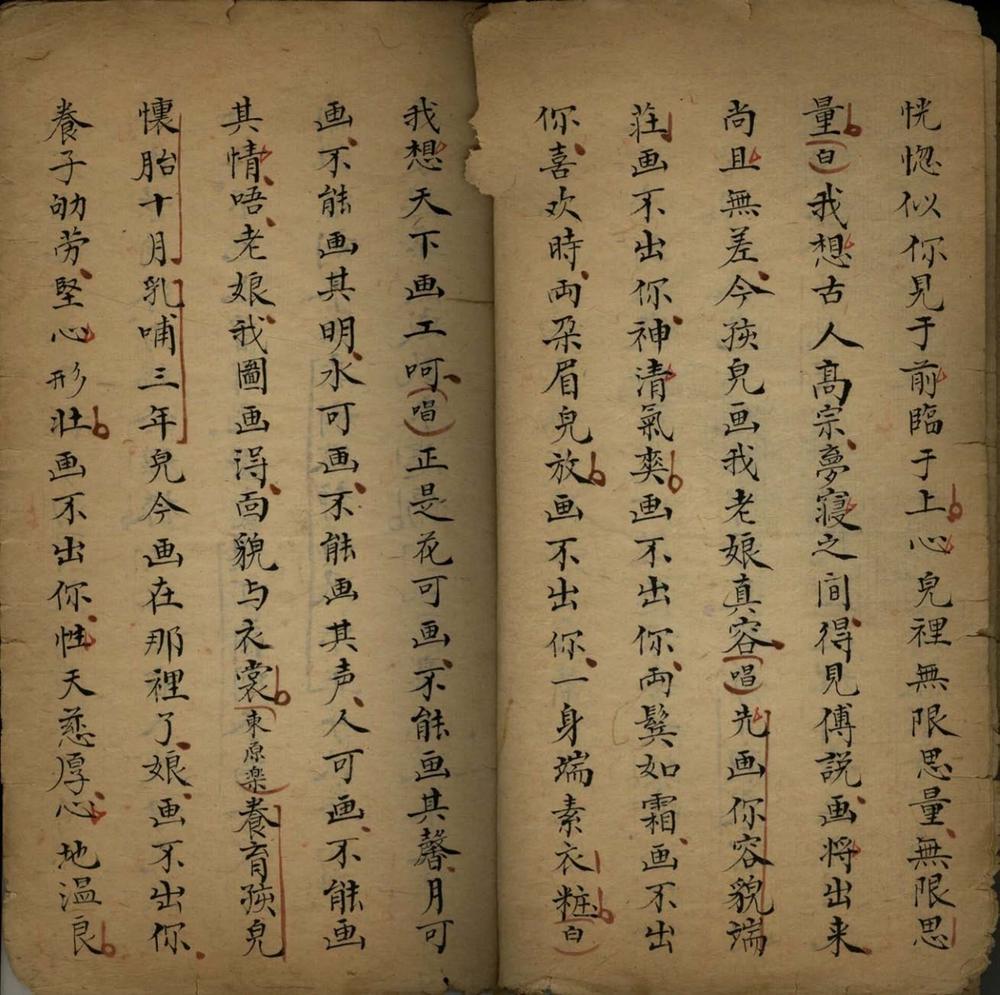 恍惚似你見于前臨于上心皃裡無限思量無限思
量(白)我想古人髙宗夢寢之间得見傅説画将出来
尚且無差今孩皃画我老娘真容(唱)先画你容貌端
莊画不出你神清氣爽画不出你両鬂如霜画不出
你喜欢時両朶眉皃放画不出你一身端素衣粧(白)
我想天下画工呵(唱)正是花可画不能画其馨月可
画不能画其明水可画不能画其声人可画不能画
其情唔老娘我圖画淂面貌与衣裳(東原楽)養育孩皃
懐胎十月乳哺三年皃今画在那裡了娘画不出你
養子劬劳堅心形壯画不出你性天慈厚心地温良